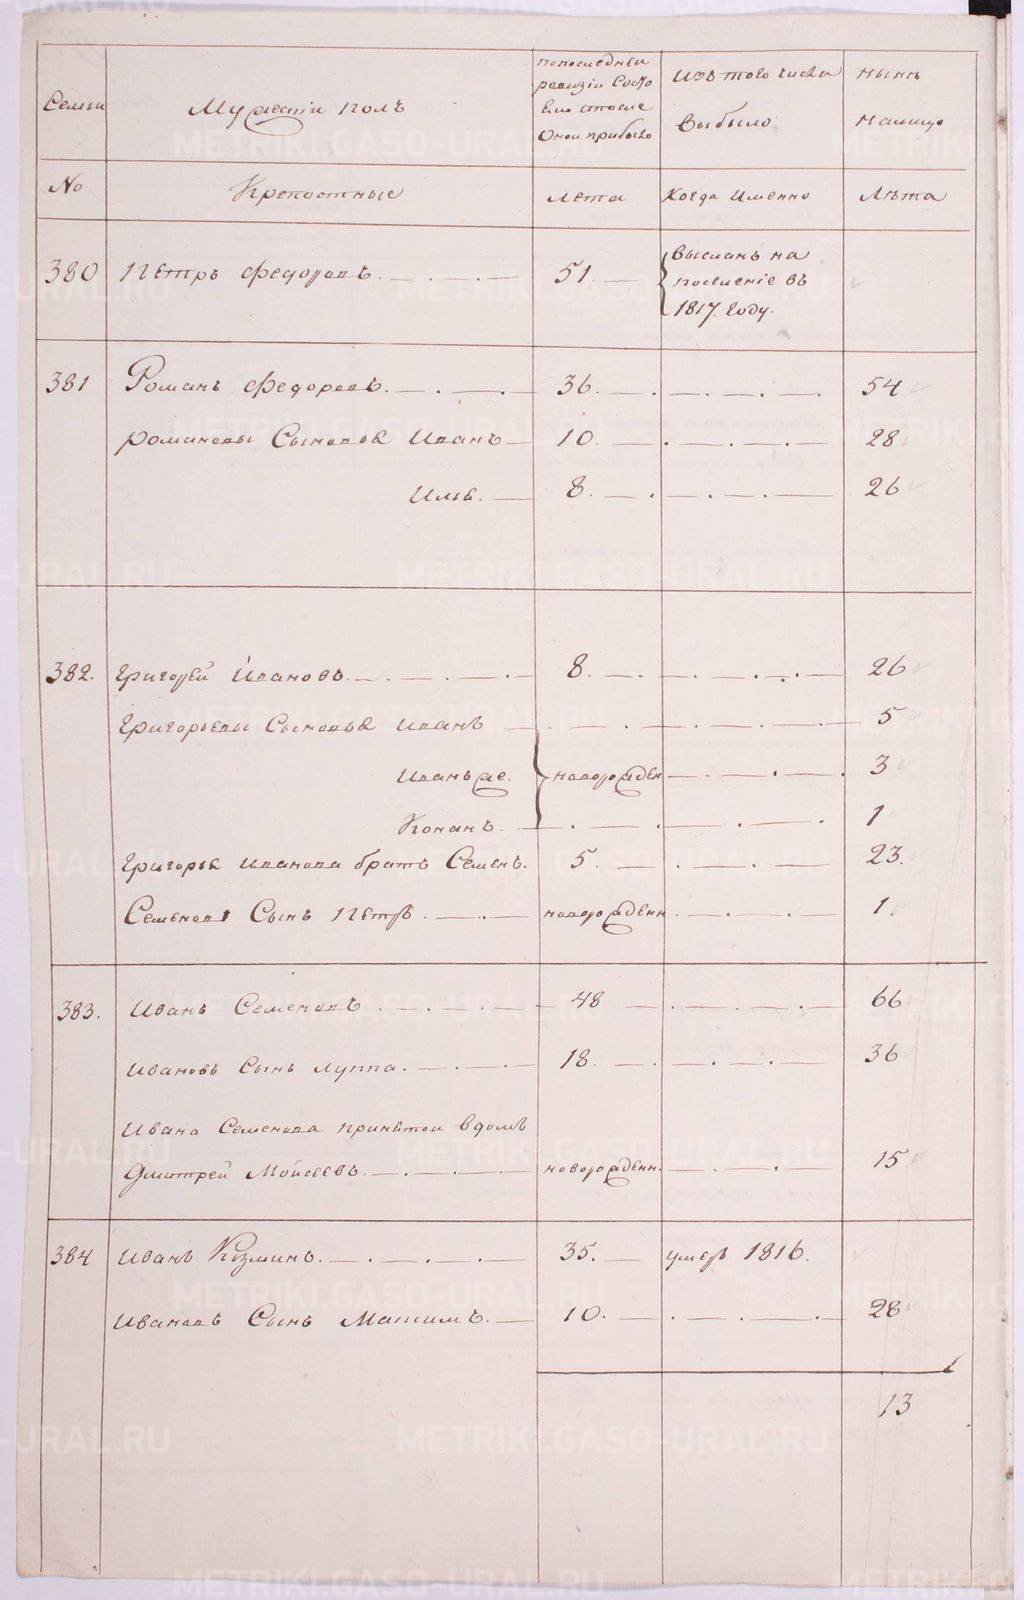 Семьи
Мужескiй полъ
попоследней
ревизiи Состо
яло ипосле
Оной прибыло
Изъ того числа
Выбыло
нынѣ
налицо
No
Крепостные
лета
Когда Именно
Лѣта
380 Петръ Федоровъ. 51. Высланъ на
поселенiе въ
1817 году.
381 Романъ Федоровъ. 36. 54
Романовы Сыновья Иванъ 10. 28
Илья. 8. 26
382. Григорей Ивановъ. 8. 26
Григорьевы Сыновья Иванъ 5
Иванъ же. новорожден 3
Конанъ. 1
Григорья Иванова братъ Семенъ. 5. 23.
Семеновъ Сынъ Петръ. новорожденн. 1.
383. Иванъ Семеновъ. 48 66
Ивановъ Сынъ Луппа. 18. 36
Ивана Семенова принятой вдомъ
Дмитрей Моисеевъ. новорожденн. 15
384 Иванъ Козминъ. 35. умеръ 1816.
Ивановъ Сынъ Максимъ. 10. 28
13
METRIKI.GASO-URAL.RU